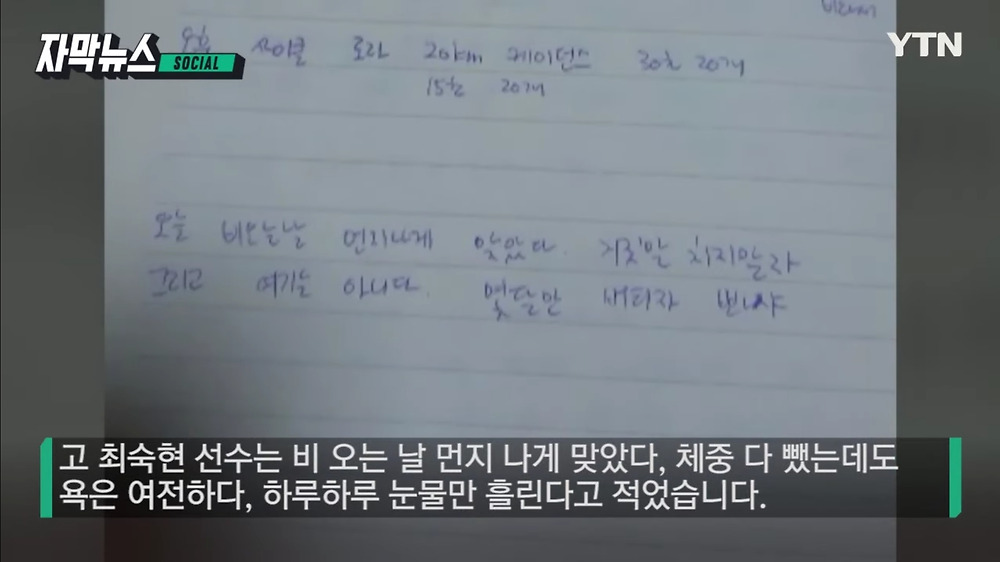 자막뉴스
SOCIAL
YTN
오후 싸이클 로라 20km 케이던스 30초 20개
15초 20개
오늘 비오는날 먼지나게 맞았다. 거짓말 치지말라
그리고 여기는 아니다. 몇달만 버티자
고 최숙현 선수는 비 오는 날 먼지 나게 맞았다, 체중 다 뺐는데도
욕은 여전하다, 하루하루 눈물만 흘린다고 적었습니다.